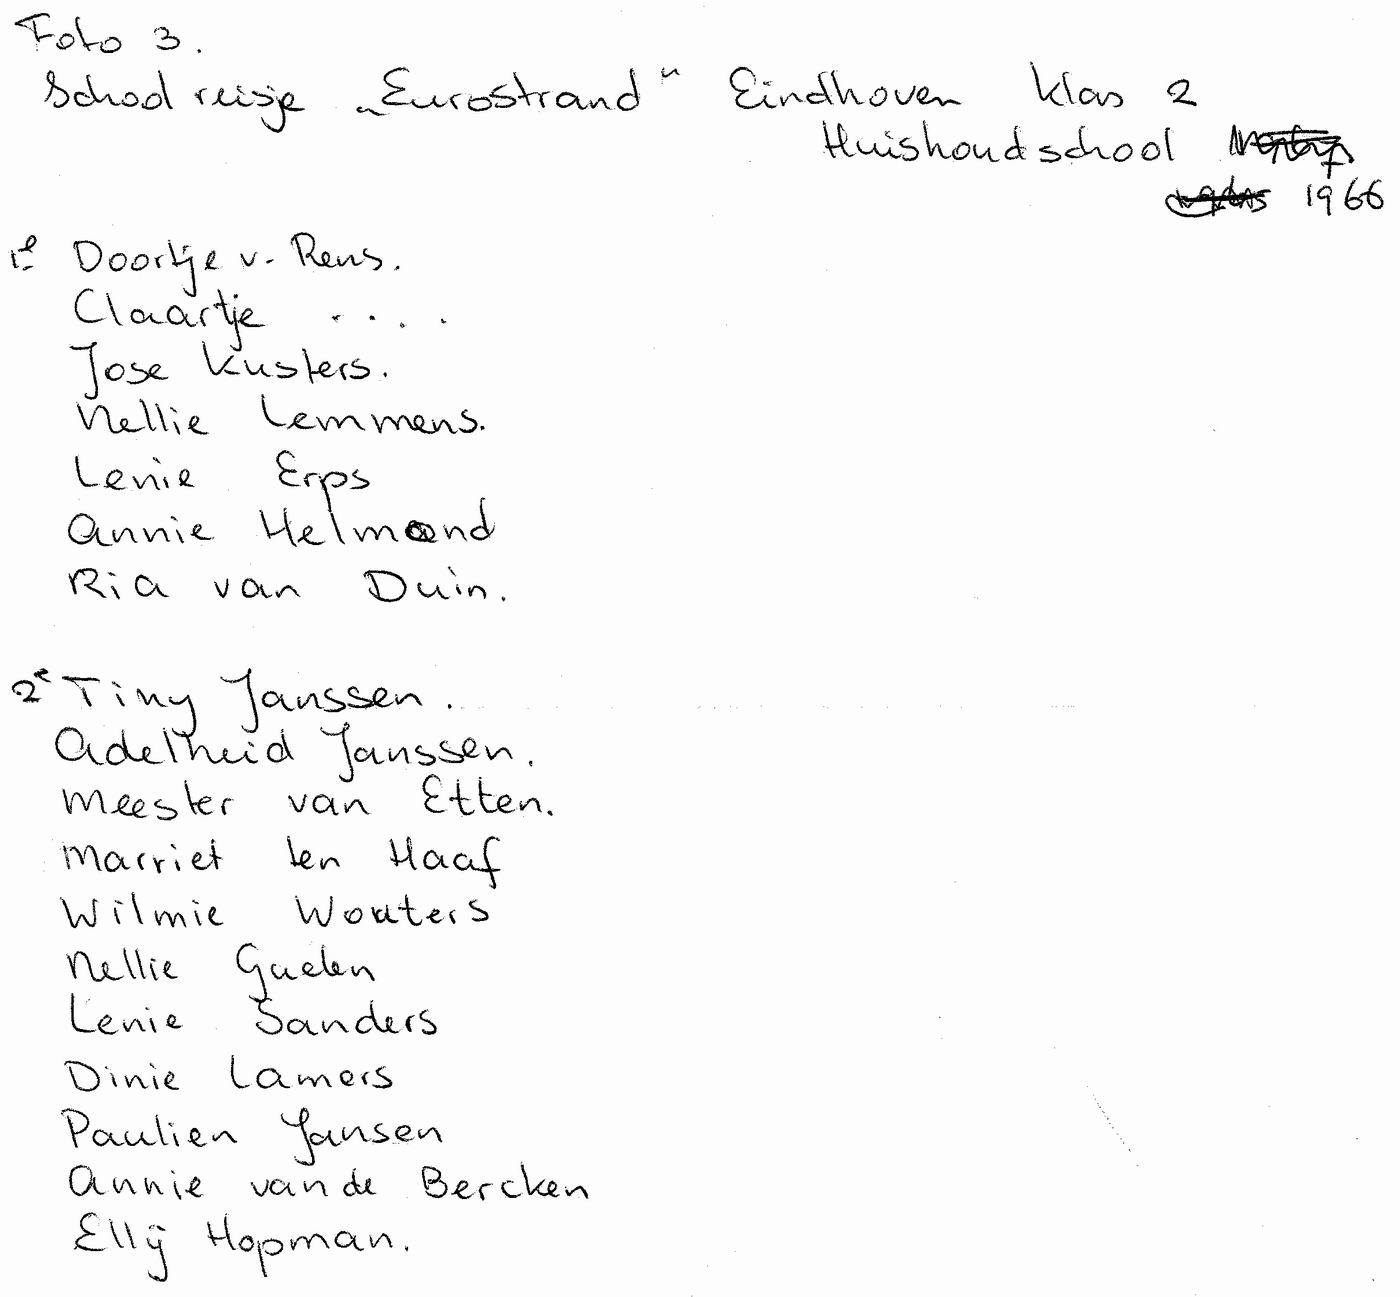 Foto 3.
Schoolreisje „Eurostrand" Eindhoven klas 2
Huishoudschool
1966
1e Doortje v. Rens.
Claartje ....
Jose Kusters.
Nellie Lemmens.
Lenie Erps
Annie Helmond
Ria van Duin.
2e Tiny Janssen.
Adelheid Janssen.
Meester van Etten.
Marriet ten Haaf
Wilmie Wouters
Nellie
Lenie Sanders
Dinie Lamers
Paulien Jansen
Annie van de Bercken
Ellij Hopman.